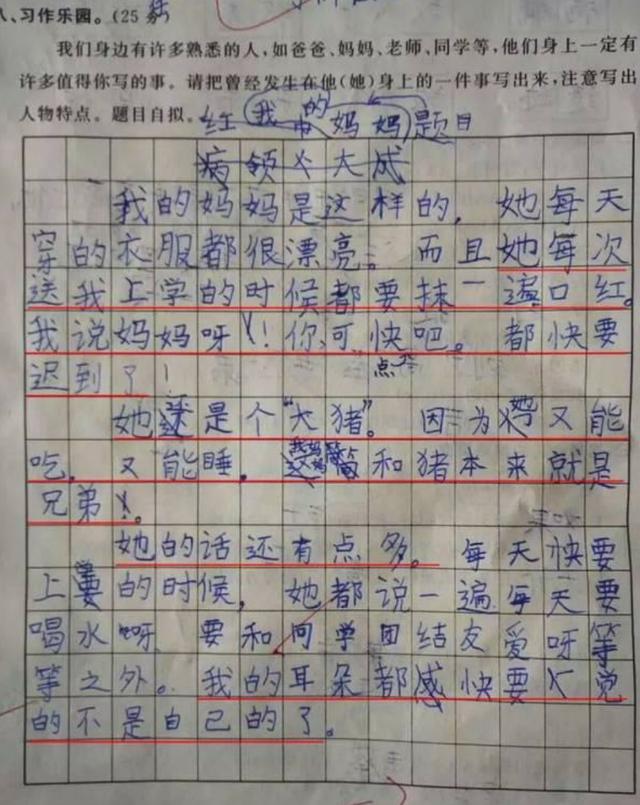 八、习作乐园。(25分)
我们身边有许多熟悉的人,如爸爸、妈妈、老师、同学等,他们身上一定有
许多值得你写的事。请把曾经发生在他(她)身上的一件事写出来,注意写出
人物特点。题目自拟。
红 我的妈妈 题目
病领大成
我的妈妈是这样的,她每天
穿的衣服都很漂亮。而且她每次
送我上学的时候都要抹一遍口红。
我说妈妈呀!你可快点吧。都快要
迟到了!
她还是个“大猪”。因为她又能
吃,又能睡,和猪本来就是
兄弟。
她的话还有点多。每天快要
上学的时候,她都说一遍每天要
喝水呀要和同学团结友爱呀等
等之外。我的耳朵都感快要觉
的不是自己的了。